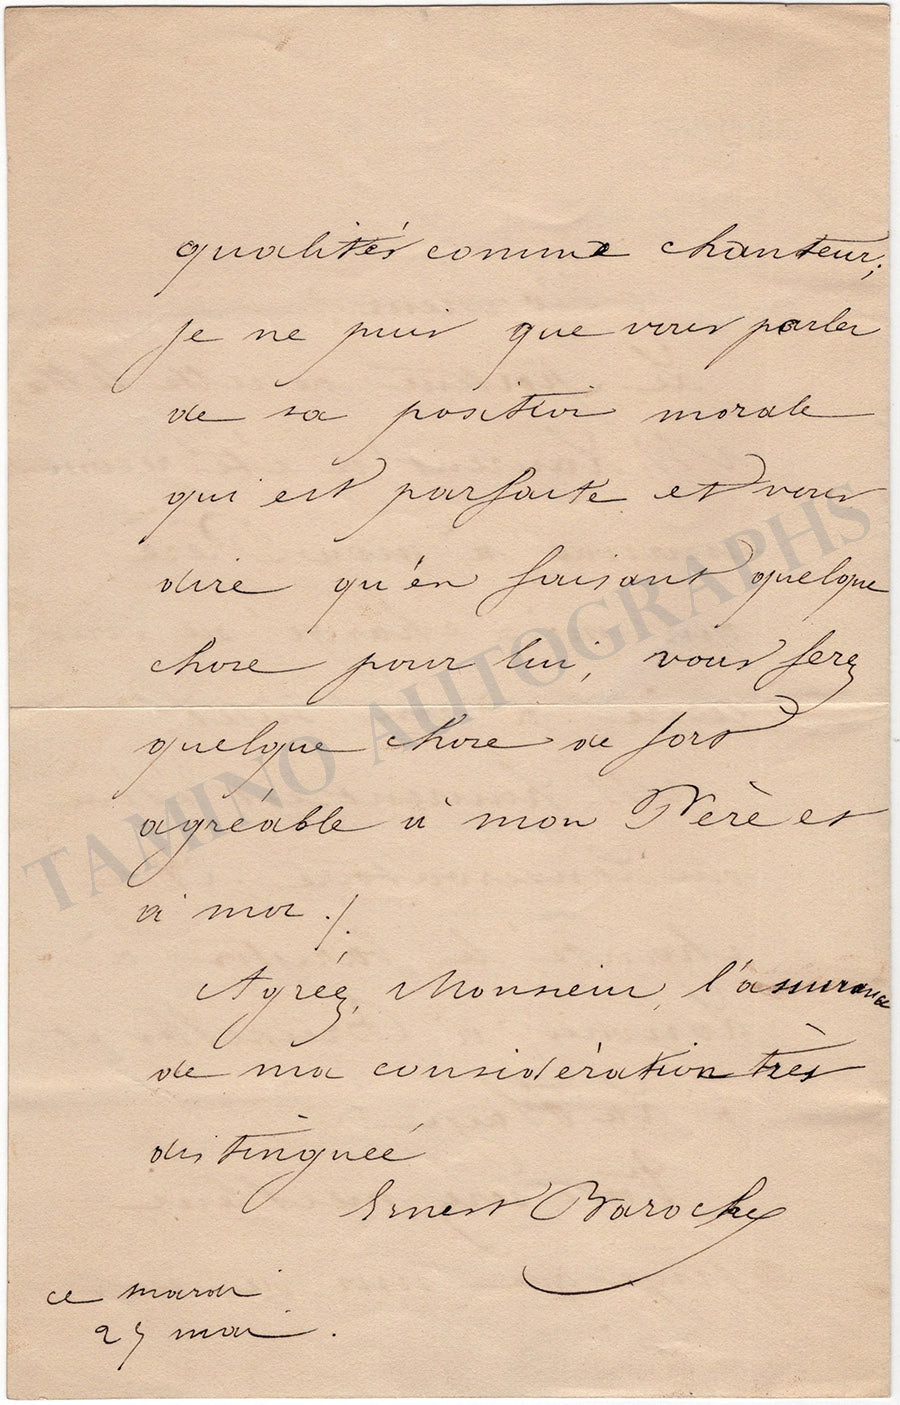 qualités comme chanteur;
je ne puis que vous parler
de sa position morale
qui est parfaite et vous
dire qu'en faisant quelque
chose pour lui, vous ferez
quelque chose de fort
agréable à mon Père et
à moi ./.
Agréez, Monsieur, l'assurance
de ma considération très
distinguée
Ernest Baroche
ce mardi
25 mai.
TAMINO AUTOGRAPHS